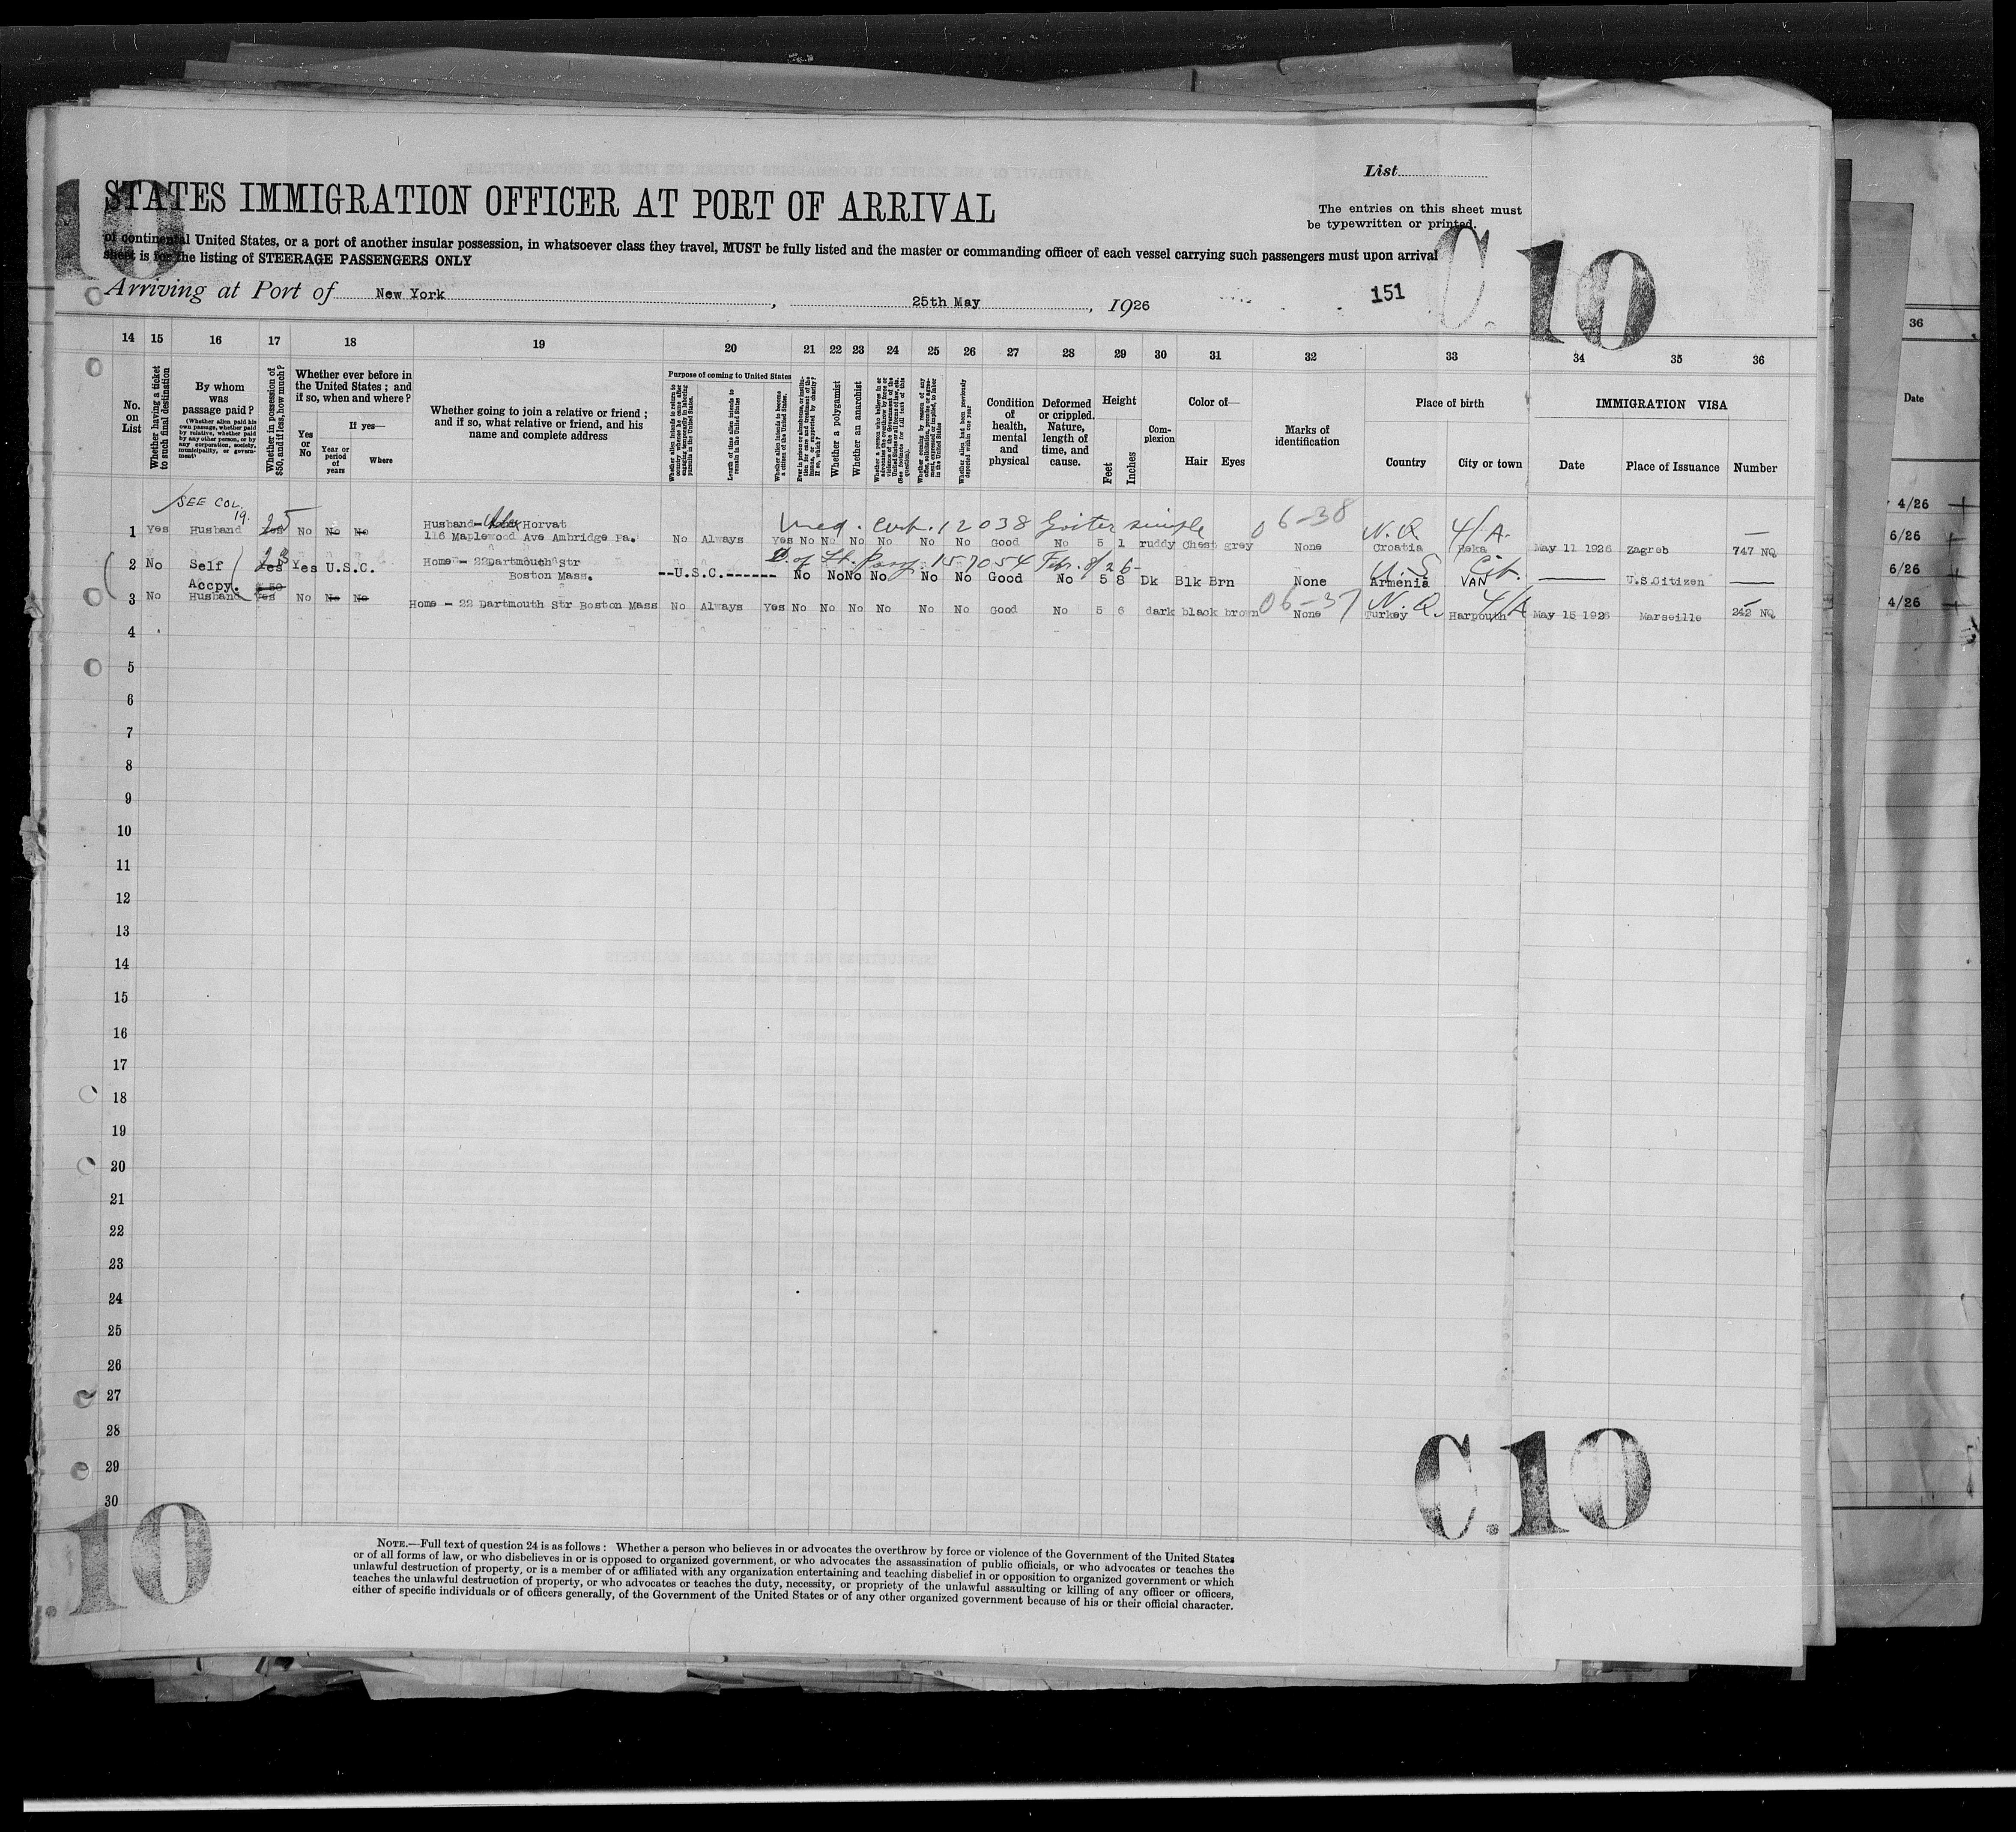 List
10
STATES IMMIGRATION OFFICER AT PORT OF ARRIVAL
The entries on this sheet must
be typewritten or printed.
of continental United States, or a port of another insular possession, in whatsoever class they travel, MUST be fully listed and the master or commanding officer of each vessel carrying such passengers must upon arrival
sheet is for the listing of STEERAGE PASSENGERS ONLY
C 10
Arriving at Port of New York, 25th May, 1926
151
14 15 16 17 18 19 20 21 22 23 24 25 26 27 28 29 30 31 32 33 34 35 36
No. on List
Whether having a ticket to such final destination
By whom was passage paid?
(Whether alien paid his own passage, whether paid by relative, whether paid by any other person, or by any corporation, society, municipality, or government)
Whether in possession of $50, and if less, how much?
Whether ever before in the United States; and if so, when and where?
Yes or No
If yes—
Year or period of years
Where
Whether going to join a relative or friend; and if so, what relative or friend, and his name and complete address
Purpose of coming to United States
Length of time alien intends to remain in the United States
Whether alien intends to become a citizen of the United States.
Whether a polygamist
Whether an anarchist
Whether alien had been previously deported within one year
Condition of health, mental and physical
Deformed or crippled. Nature, length of time, and cause.
Height
Feet
Inches
Complexion
Color of—
Hair
Eyes
Marks of identification
Place of birth
Country
City or town
IMMIGRATION VISA
Date
Place of Issuance
Number
SEE COL. 19.
Med. Cert. 12038 Goiter simple 06-38 N.Q. 4/A. —
1 Yes Husband Yes 25 No No No Husband- Horvat
116 Maplewood Ave Ambridge Pa. No Always Yes No No No No No No Good No 5 1 ruddy Chest grey None Croatia May 11 1926 Zagreb 747 NQ
D. of St. Passp. 157054 Febr. 8/26- U.S. Cit.
2 No Self Yes Yes U.S.C. Home - 22Dartmouth Str
Boston Mass. --U.S.C.------ No No No No No No Good No 5 8 Dk Blk Brn None Armenia VAN U.S.Citizen
06-37 N.Q. 4/A
3 No Accpy. Husband $50 Yes No No No Home - 22 Dartmouth Str Boston Mass No Always Yes No No No No No No Good No 5 6 dark black brown None Turkey Harpouth May 15 1926 Marseille 242 NQ
4
5
6
7
8
9
10
11
12
13
14
15
16
17
18
19
20
21
22
23
24
25
26
27
28
29
30
36
Date
4/26
6/26
6/26
4/26
C.10
.10
NOTE.—Full text of question 24 is as follows: Whether a person who believes in or advocates the overthrow by force or violence of the Government of the United States
or of all forms of law, or who disbelieves in or is opposed to organized government, or who advocates the assassination of public officials, or who advocates or teaches the
unlawful destruction of property, or is a member of or affiliated with any organization entertaining and teaching disbelief in or opposition to organized government or which
teaches the unlawful destruction of property, or who advocates or teaches the duty, necessity, or propriety of the unlawful assaulting or killing of any officer or officers,
either of specific individuals or of officers generally, of the Government of the United States or of any other organized government because of his or their official character.